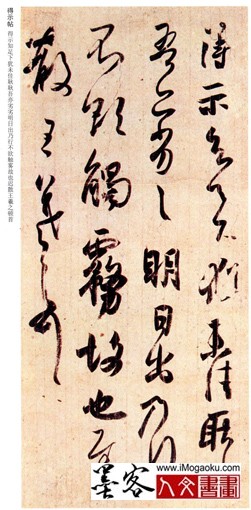 得示知足下猶未佳耿耿
吾亦劣劣明日出乃行
不欲觸霧故也遲
散王羲之頓首
得示帖 得示知足下犹未佳耿耿吾亦劣劣明日出乃行不欲触雾故也迟散王羲之顿首
墨客
www.iMogaoku.com
人文書畫